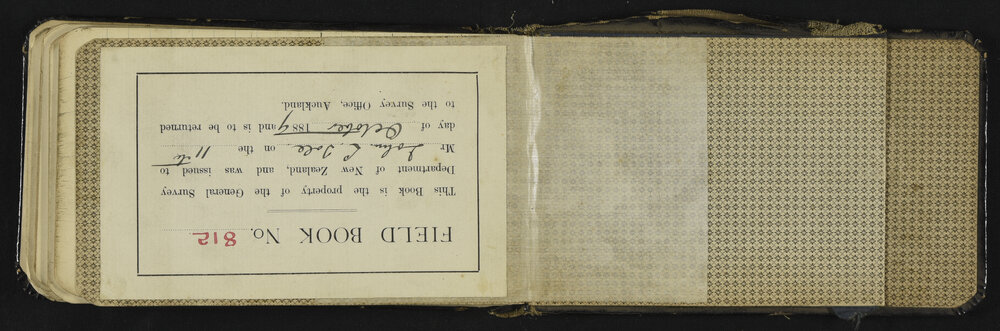 FIELD BOOK No. 812
This Book is the property of the General Survey
Department of New Zealand, and was issued to
Mr John L. Tole on the 11th
day of October 1889 and is to be returned
to the Survey Office, Auckland.